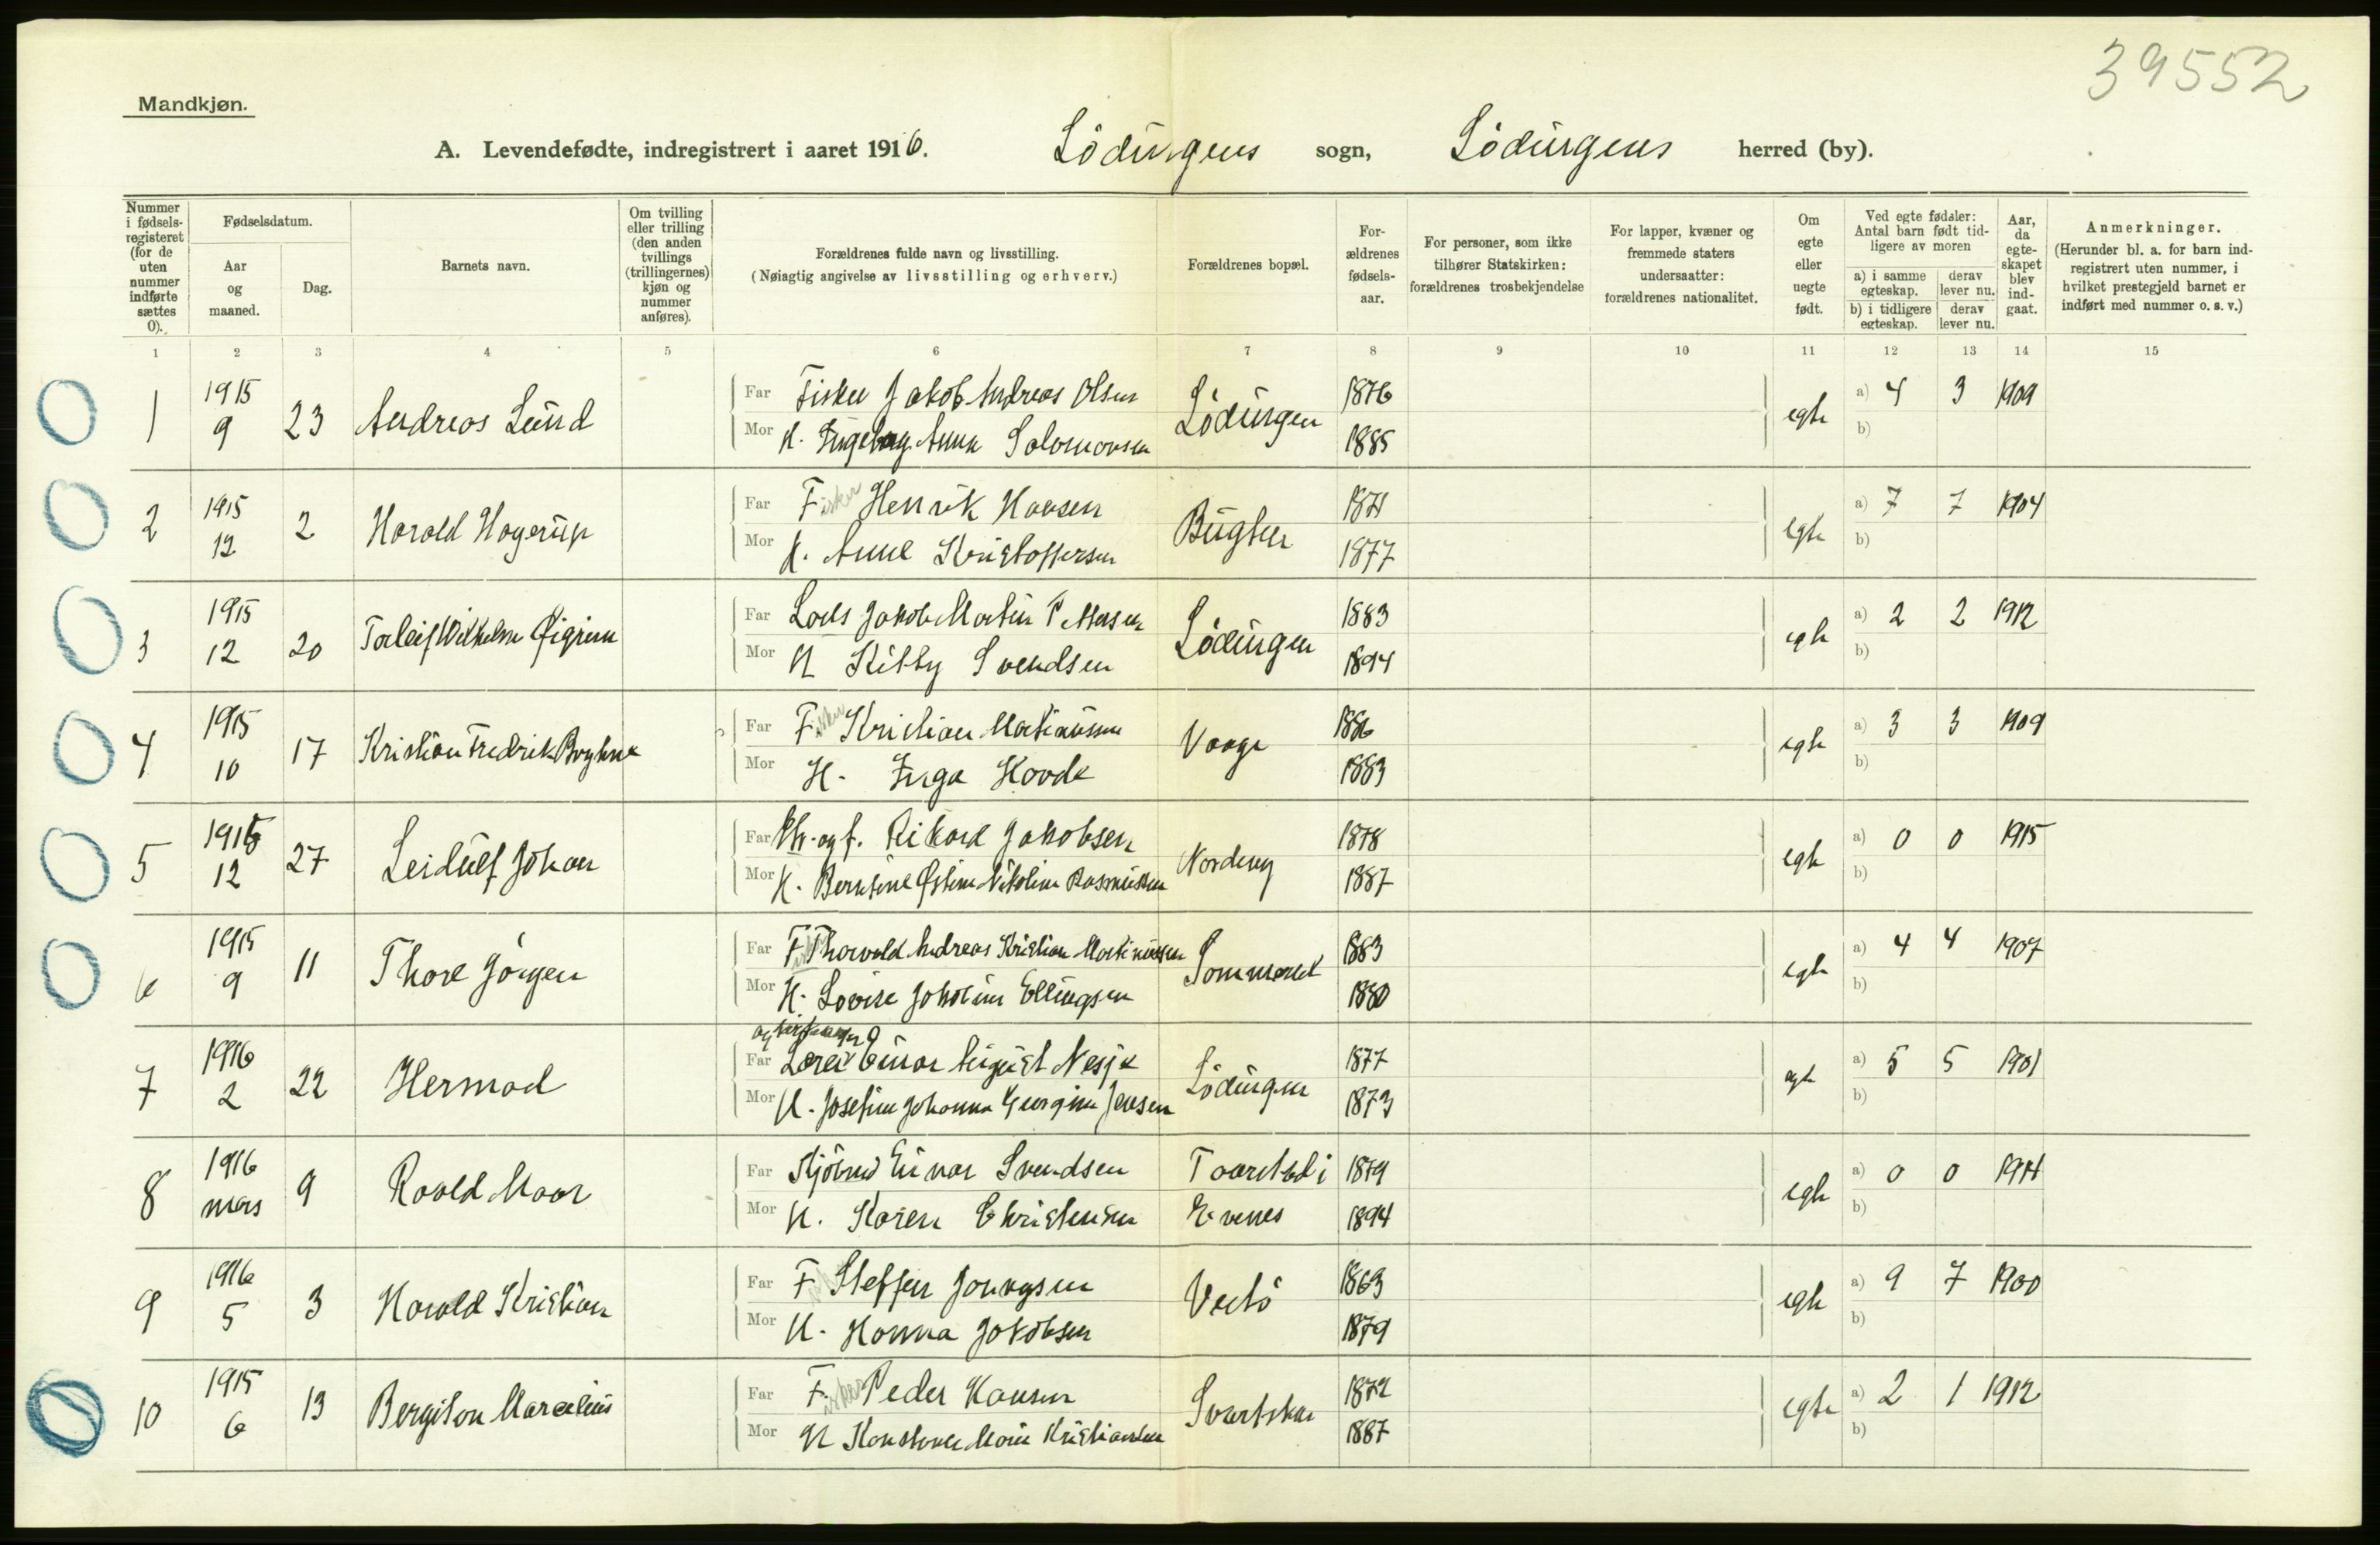 39552
Mandkjøn.
A. Levendefødte, indregistrert i aaret 1916. Lødingens sogn, Lødingens herred (by).
Nummer i fødselsregisteret (for de uten nummer indførte sættes 0).
Fødselsdatum.
Aar og maaned.
Dag.
Barnets navn.
Om tvilling eller trilling (den anden tvillings (trillingernes) kjøn og nummer anføres).
Forældrenes fulde navn og livsstilling.
(Nøiagtig angivelse av livsstilling og erhverv.)
Forældrenes bopæl.
Forældrenes fødselsaar.
For personer, som ikke tilhører Statskirken: forældrenes trosbekjendelse
For lapper, kvæner og fremmede staters undersaatter: forældrenes nationalitet.
Om egte eller uegte født.
Ved egte fødsler: Antal barn født tidligere av moren
a) i samme egteskap. derav lever nu.
b) i tidligere egteskap. derav lever nu.
Aar, da egteskapet blev indgaat.
Anmerkninger.
(Herunder bl. a. for barn indregistrert uten nummer, i hvilket prestegjeld barnet er indført med nummer o. s. v.)
1 2 3 4 5 6 7 8 9 10 11 12 13 14 15
1 1915 9 23 Andreas Lund
Far Fisker Jakob Andreas Olsen Lødingen 1876 egte a) 4 3 1909
Mor H. Ingeborg Anna Salomonsen 1885 b)
2 1915 12 2 Harald Hagerup
Far Fisker Henrik Hansen 1871 egte a) 7 7 1904
Mor H. Anne Kristoffersen 1877 b)
3 1915 12 20 Torleif Wilhelm
Far Lods Jakob Martin Pettersen Lødingen 1883 egte a) 2 2 1912
Mor H Kitty Svendsen 1894 b)
4 1915 10 17 Kristian Fredrik
Far Fisker Kristian Martinussen Vaage 1886 egte a) 3 3 1909
Mor H. Inga 1883 b)
5 1915 12 27 Leidulf Johan
Far Rikard Jakobsen 1878 egte a) 0 0 1915
Mor H. Berntine Østine Nikoline Rasmussen 1887 b)
6 1915 9 11 Thore Jørgen
Far F Thorvald Andreas Kristian Martinussen 1883 egte a) 4 4 1907
Mor H. Lovise Jakobine Ellingsen 1880 b)
7 1916 2 22 Hermod
Far Lærer Einar August Nesje Lødingen 1877 egte a) 5 5 1901
Mor H. Josefine Johanna Georgine Jensen 1873 b)
8 1916 mars 9 Roald Maar
Far Einar Svendsen Taarstad i 1879 egte a) 0 0 1914
Mor H. Karen Christensen Evenes 1894 b)
9 1916 5 3 Harald Kristian
Far F Steffen 1863 egte a) 9 7 1900
Mor H. Hanna Jakobsen 1879 b)
10 1915 6 13 Bergiton Marcelius
Far Fisker Peder Hansen 1872 egte a) 2 1 1912
Mor H Marie Kristiansen 1887 b)